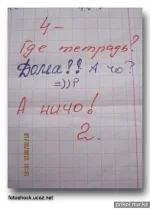 4-
Где тетрадь?
Дома!! А чо?
=))?
А ничо!
2.
fotoshock.ucoz.net
prikol.rsur.kz